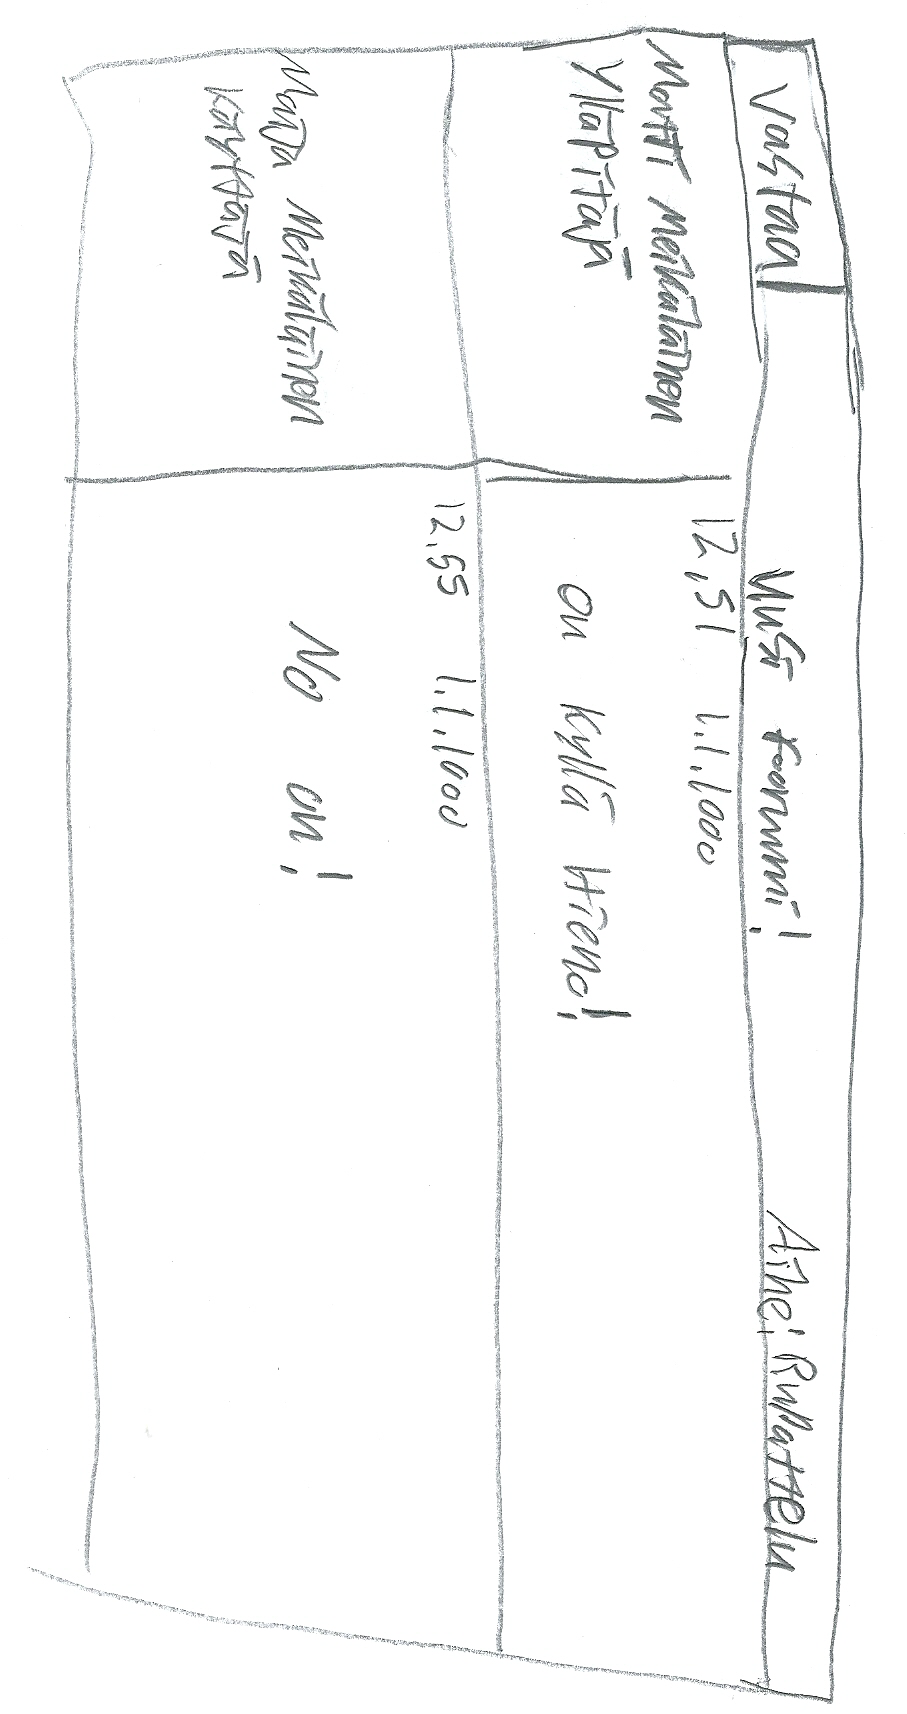 Vastaa Uusi foorumi! Aihe: Rupattelu
Matti Meikäläinen
Ylläpitäjä
12.51 1.1.1000
On kyllä Hieno!
Maija Meikäläinen
Käyttäjä
12.55 1.1.1000
No on!